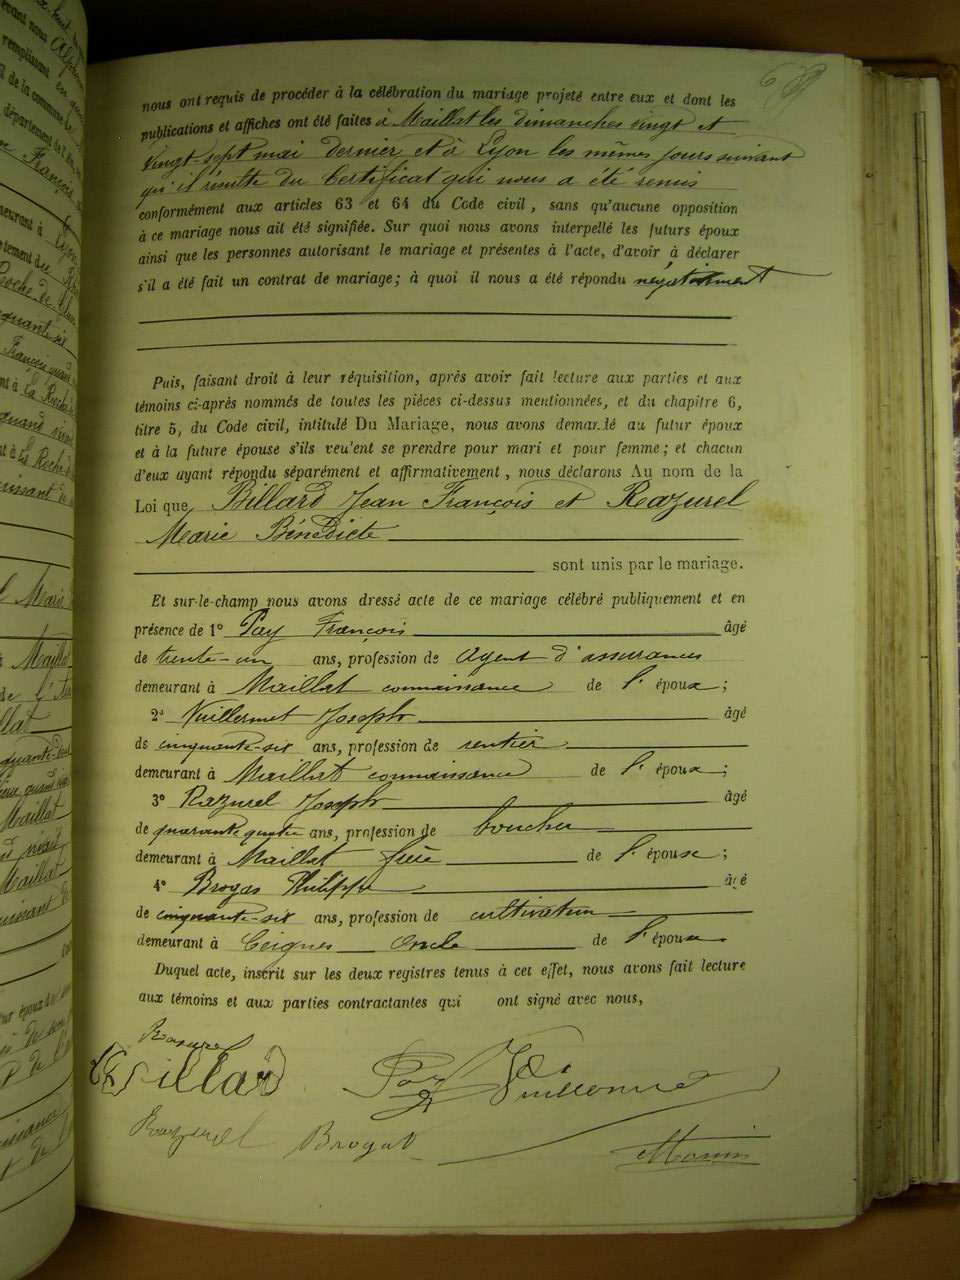 nous ont requis de procéder à la célébration du mariage projeté entre eux et dont les
publications et affiches ont été faites à Maillat les dimanches vingt et
vingt sept mai dernier et à Lyon les mêmes jours suivant
qu'il résulte du Certificat qui nous a été remis
conformément aux articles 63 et 64 du Code civil, sans qu'aucune opposition
à ce mariage nous ait été signifiée. Sur quoi nous avons interpellé les futurs époux
ainsi que les personnes autorisant le mariage et présentes à l'acte, d'avoir à déclarer
s'il a été fait un contrat de mariage; à quoi il nous a été répondu négativement
Puis, faisant droit à leur réquisition, après avoir fait lecture aux parties et aux
témoins ci-après nommés de toutes les pièces ci-dessus mentionnées, et du chapitre 6,
titre 5, du Code civil, intitulé Du Mariage, nous avons demandé au futur époux
et à la future épouse s'ils veulent se prendre pour mari et pour femme; et chacun
d'eux ayant répondu séparément et affirmativement, nous déclarons Au nom de la
Loi que Billard Jean François et Razurel
Marie Bénédicte
sont unis par le mariage.
Et sur-le-champ nous avons dressé acte de ce mariage célébré publiquement et en
présence de 1° Pay François âgé
de trente-un ans, profession de agent d'assurances
demeurant à Maillat connaissance de l'époux;
2° Vuillermet Joseph âgé
de cinquante-six ans, profession de rentier
demeurant à Maillat connaissance de l'époux;
3° Razurel Joseph âgé
de quarante quatre ans, profession de boucher
demeurant à Maillat frère de l'épouse;
4° Brogas Philippe âgé
de cinquante-six ans, profession de cultivateur
demeurant à Ceignes Oncle de l'épouse
Duquel acte, inscrit sur les deux registres tenus à cet effet, nous avons fait lecture
aux témoins et aux parties contractantes qui ont signé avec nous,
Razurel
Billard
Pay
Razurel
Brogat